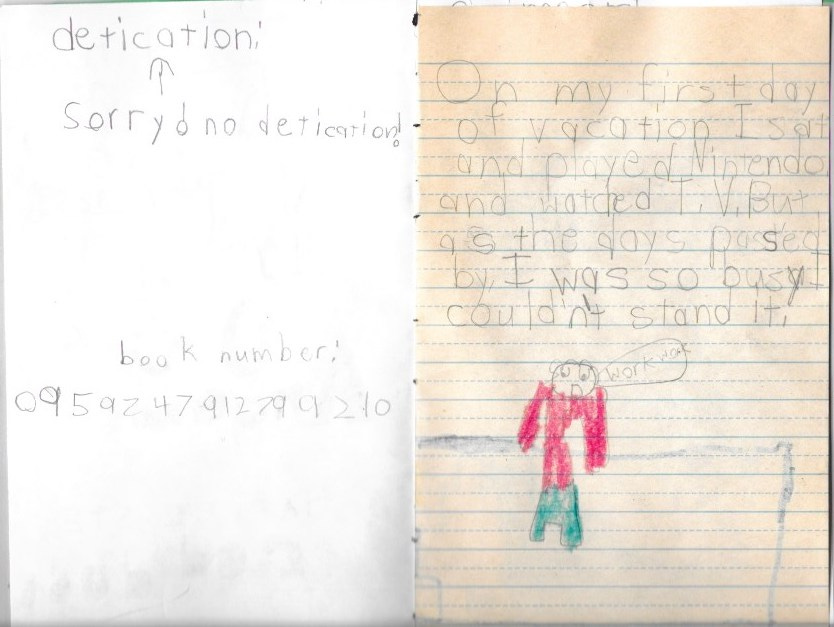 detication:
Sorry no detication!
book number:
0959247912799210
On my first day
of vacation I sat
and played Nintendo
and watched T.V. But
as the days passed
by, I was so busy I
couldn't stand it.
work work